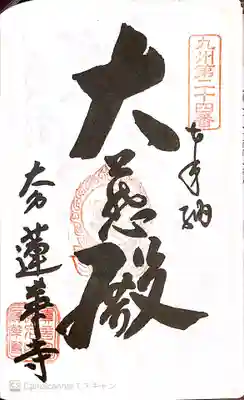 九州第二十四番
奉納
大慈殿
蓮華寺
CamScannerでスキャン